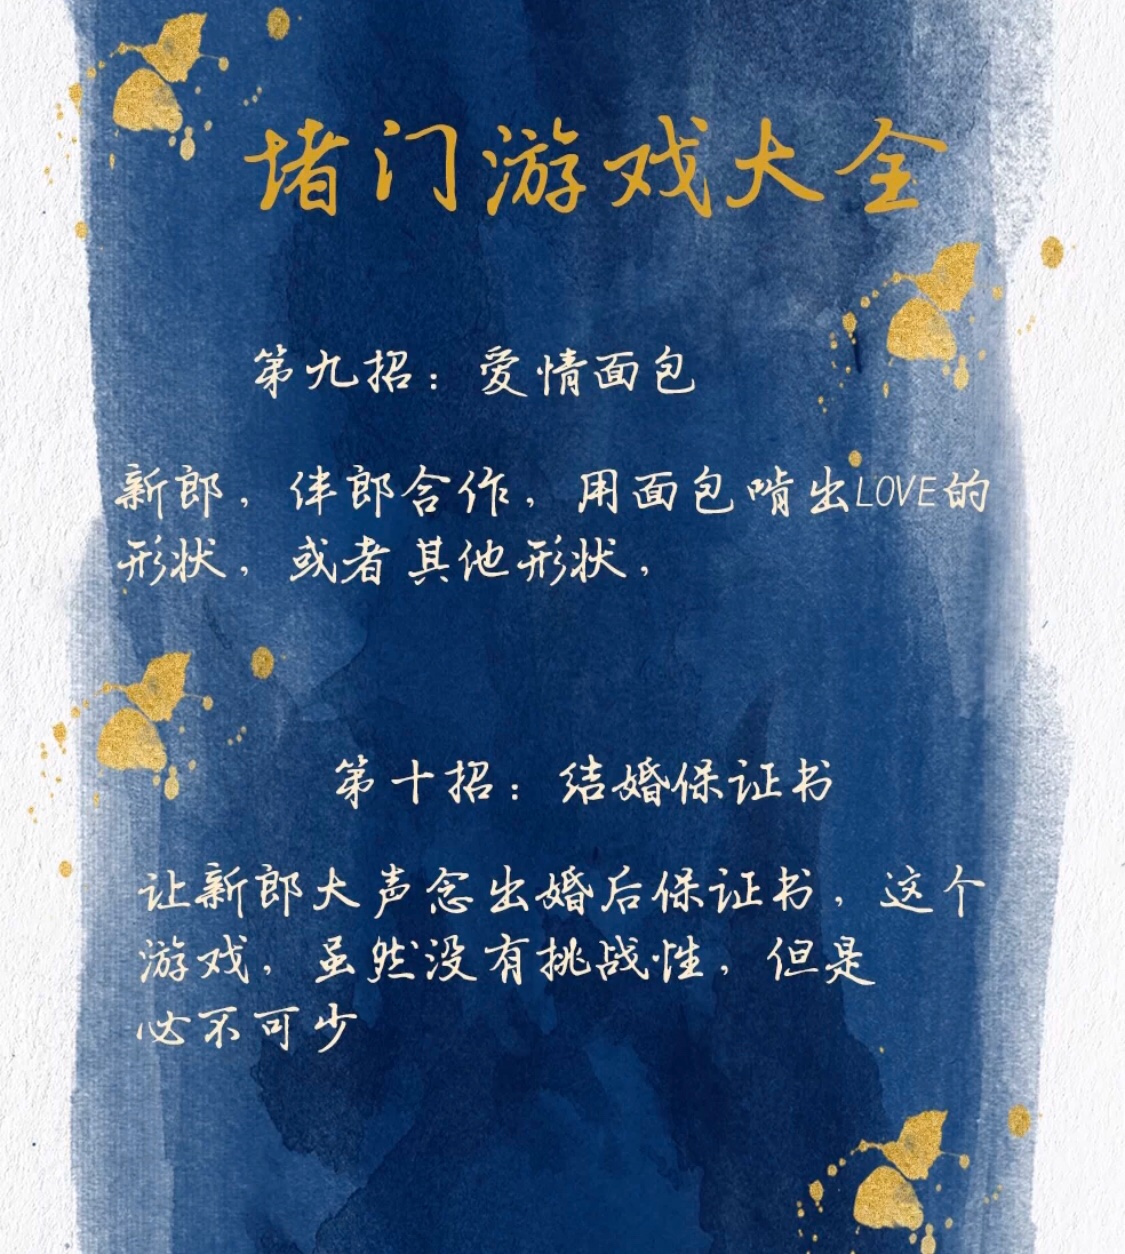 堵门游戏大全
第九招：爱情面包
新郎，伴郎合作，用面包啃出LOVE的
形状，或者其他形状，
第十招：结婚保证书
让新郎大声念出婚后保证书，这个
游戏，虽然没有挑战性，但是
必不可少